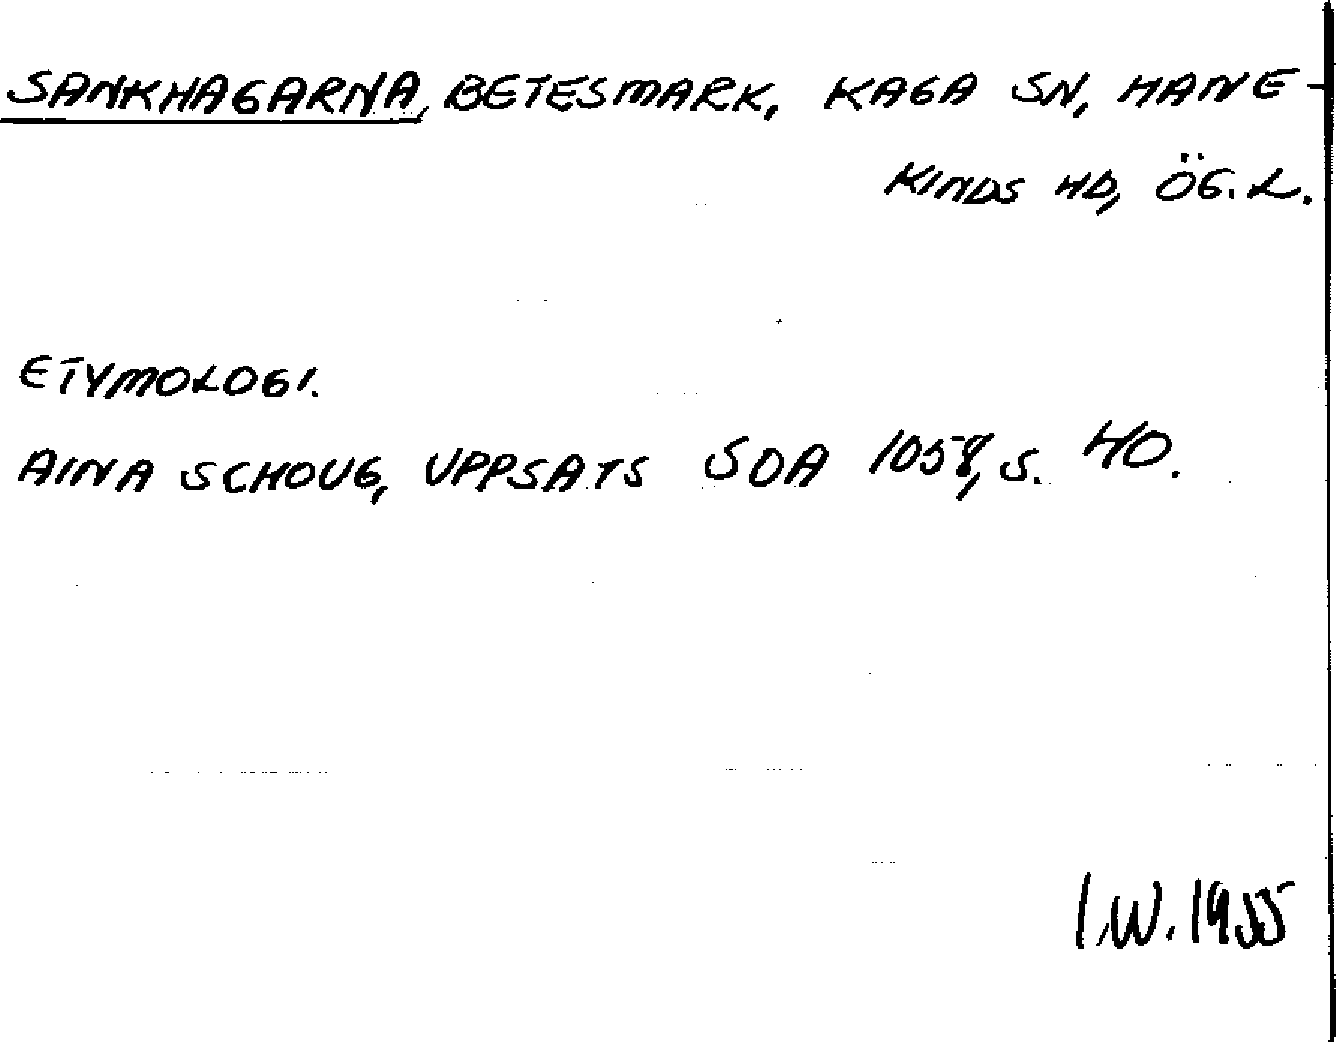 SANKHAGARNA, BETESMARK, KAGA SN, HANE-
KINDS HD, ÖG.L.
ETYMOLOGI.
AINA SCHOUG, UPPSATS SOA 1058, S. 40.
I.W. 1955